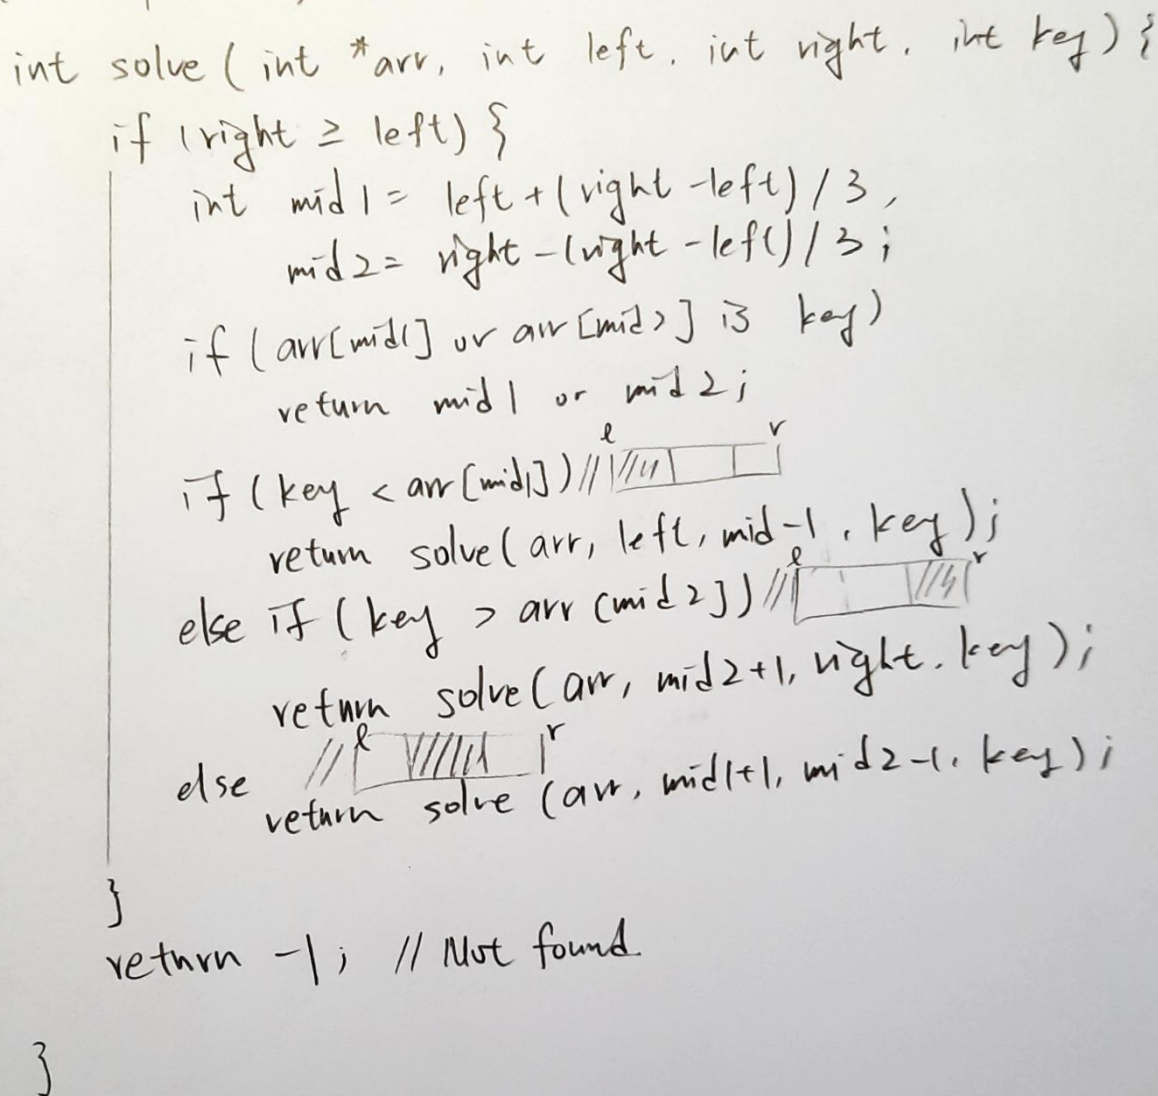 int solve ( int *arr, int left, int right, int key) {
if (right ≥ left) {
int mid1 = left + (right - left) / 3,
mid2 = right - (right - left) / 3 ;
if (arr[mid1] or arr [mid2] is key)
return mid1 or mid2 ;
l r
if (key < arr [mid1]) //
return solve( arr, left, mid-1, key) ;
l r
else if (key > arr [mid2]) //
return solve( arr, mid2+1, right, key) ;
else // l r
return solve (arr, mid1+1, mid2-1, key) ;
}
return -1 ; // Not found
}